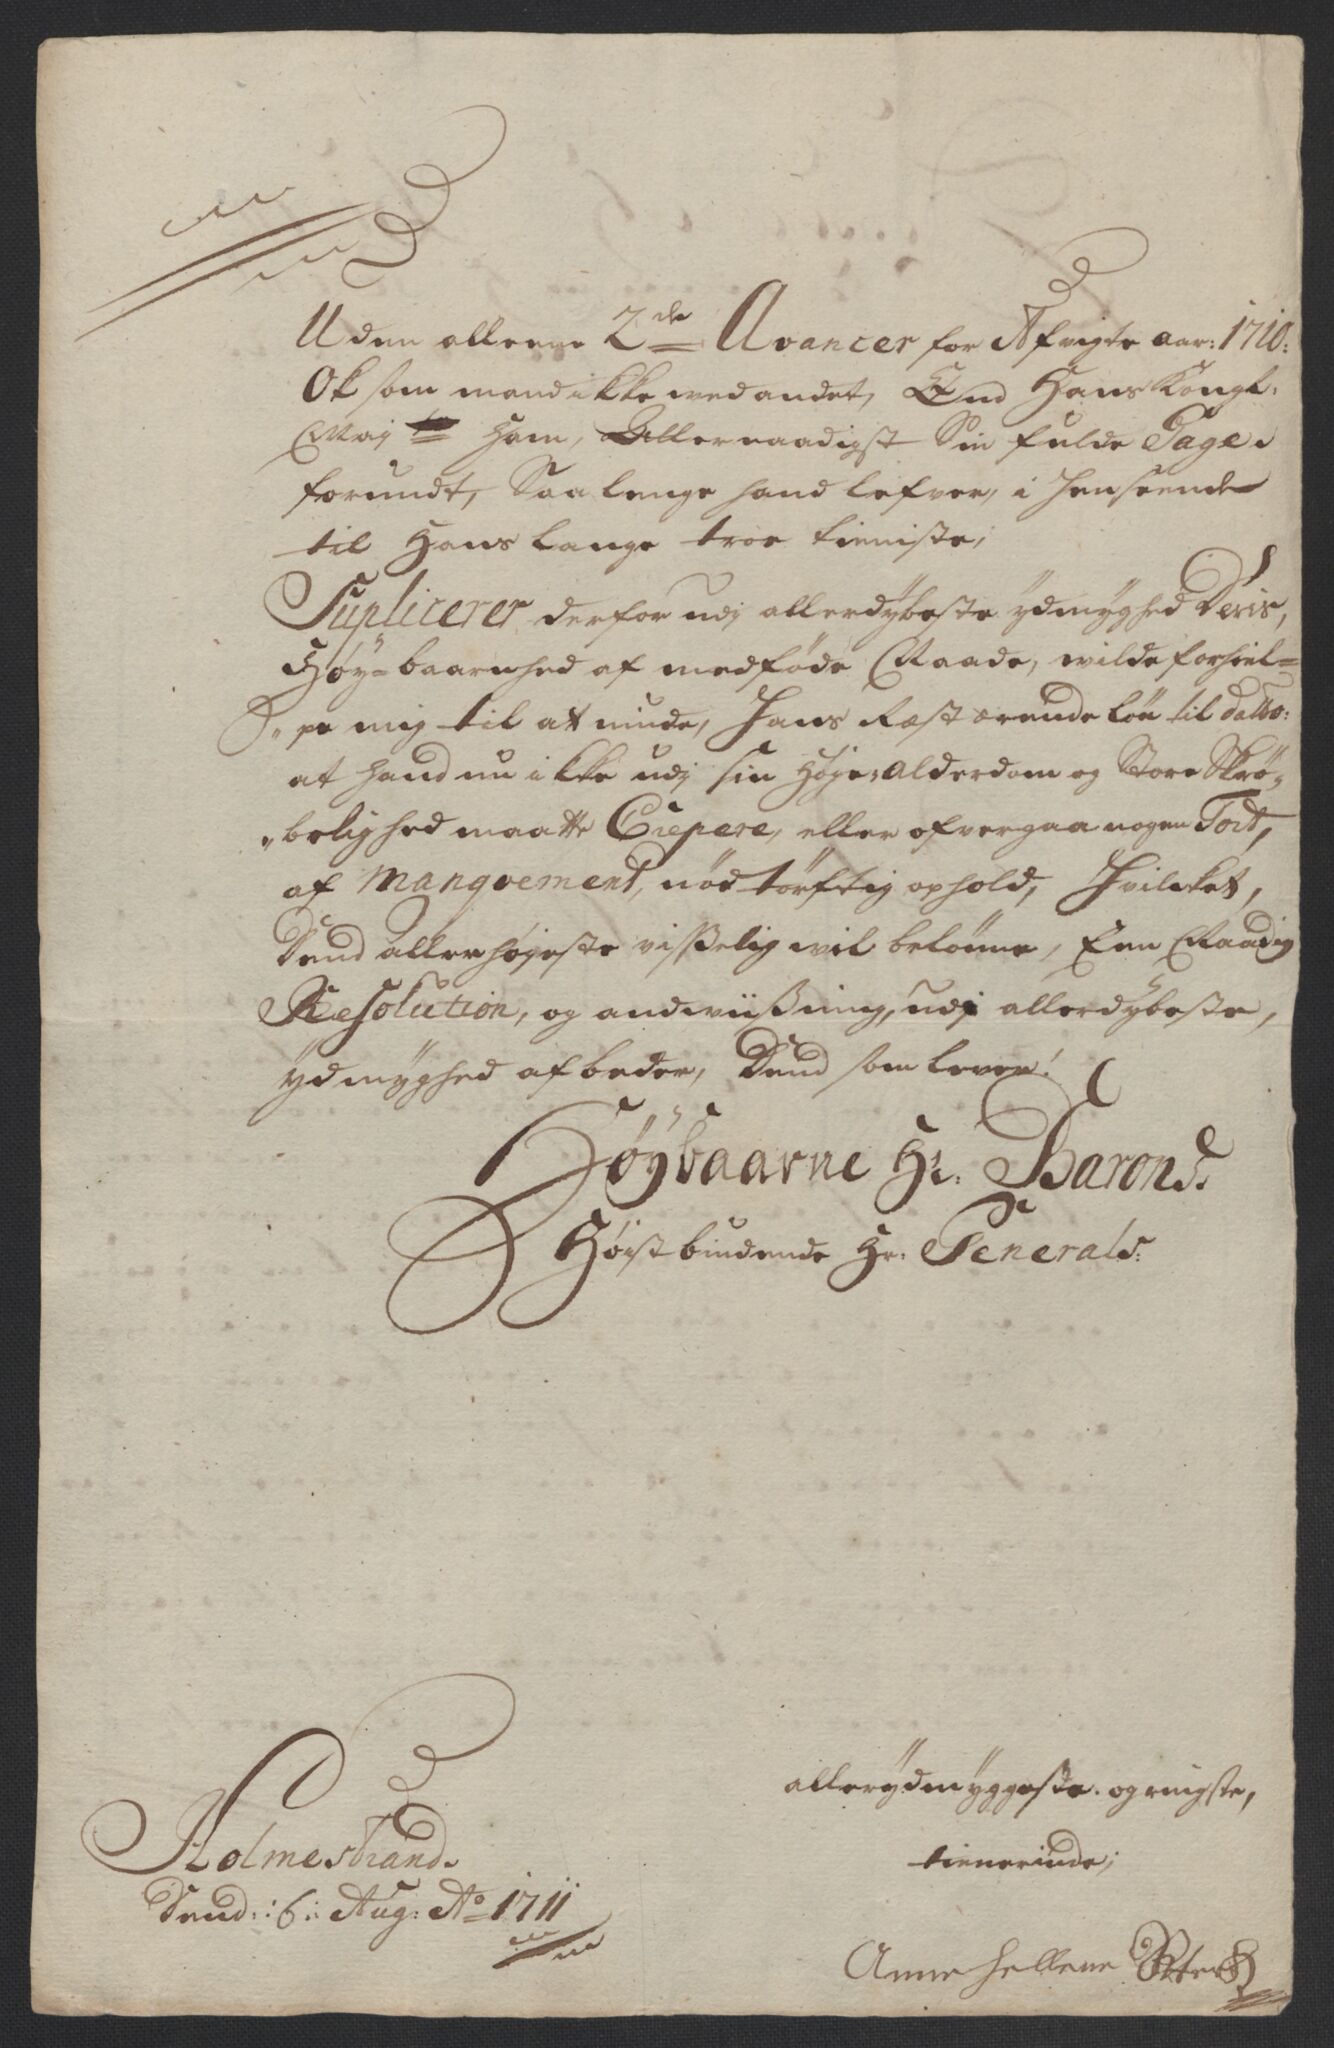 Uden alleene 2de Avancer for Afvigte aar: 1710:
Ok som mand ikke wed andet, End Hans Kongl:
May:ts Ham, Allernaadigst Sin fulde Gage
forundt, Saa lenge hand lefver, i henseende
til Hans lange troe tieniste;
Suplicerer derfor udj allerdybeste ydmyghed Deris,
Høy=baarnhed af medføde Naade, wilde forhiel=
"pe mig til at niude, Hans Rest ærende løn til datto:
at hand nu i kke udj sin Høje: alderdom og Store Skrø"
"belighed maatte Crepere, eller ofvergaa nogen Tort,
af Manqvement, nød tørftig ophold, Hvilcket,
Dend allerhøjeste visselig wil belønne, Een Naadig
Resolution, og andwiissning, udj allerdybeste,
ydmyghed af beder, Dend som lever!
Høybaarne Hr: Barons.
Høist biudende Hr: Generals:
allerydmyggeste. og ringste,
tienerinde;
Holmestrand.
Dend: :6: Aug: Ao 1711
Anne Hellene